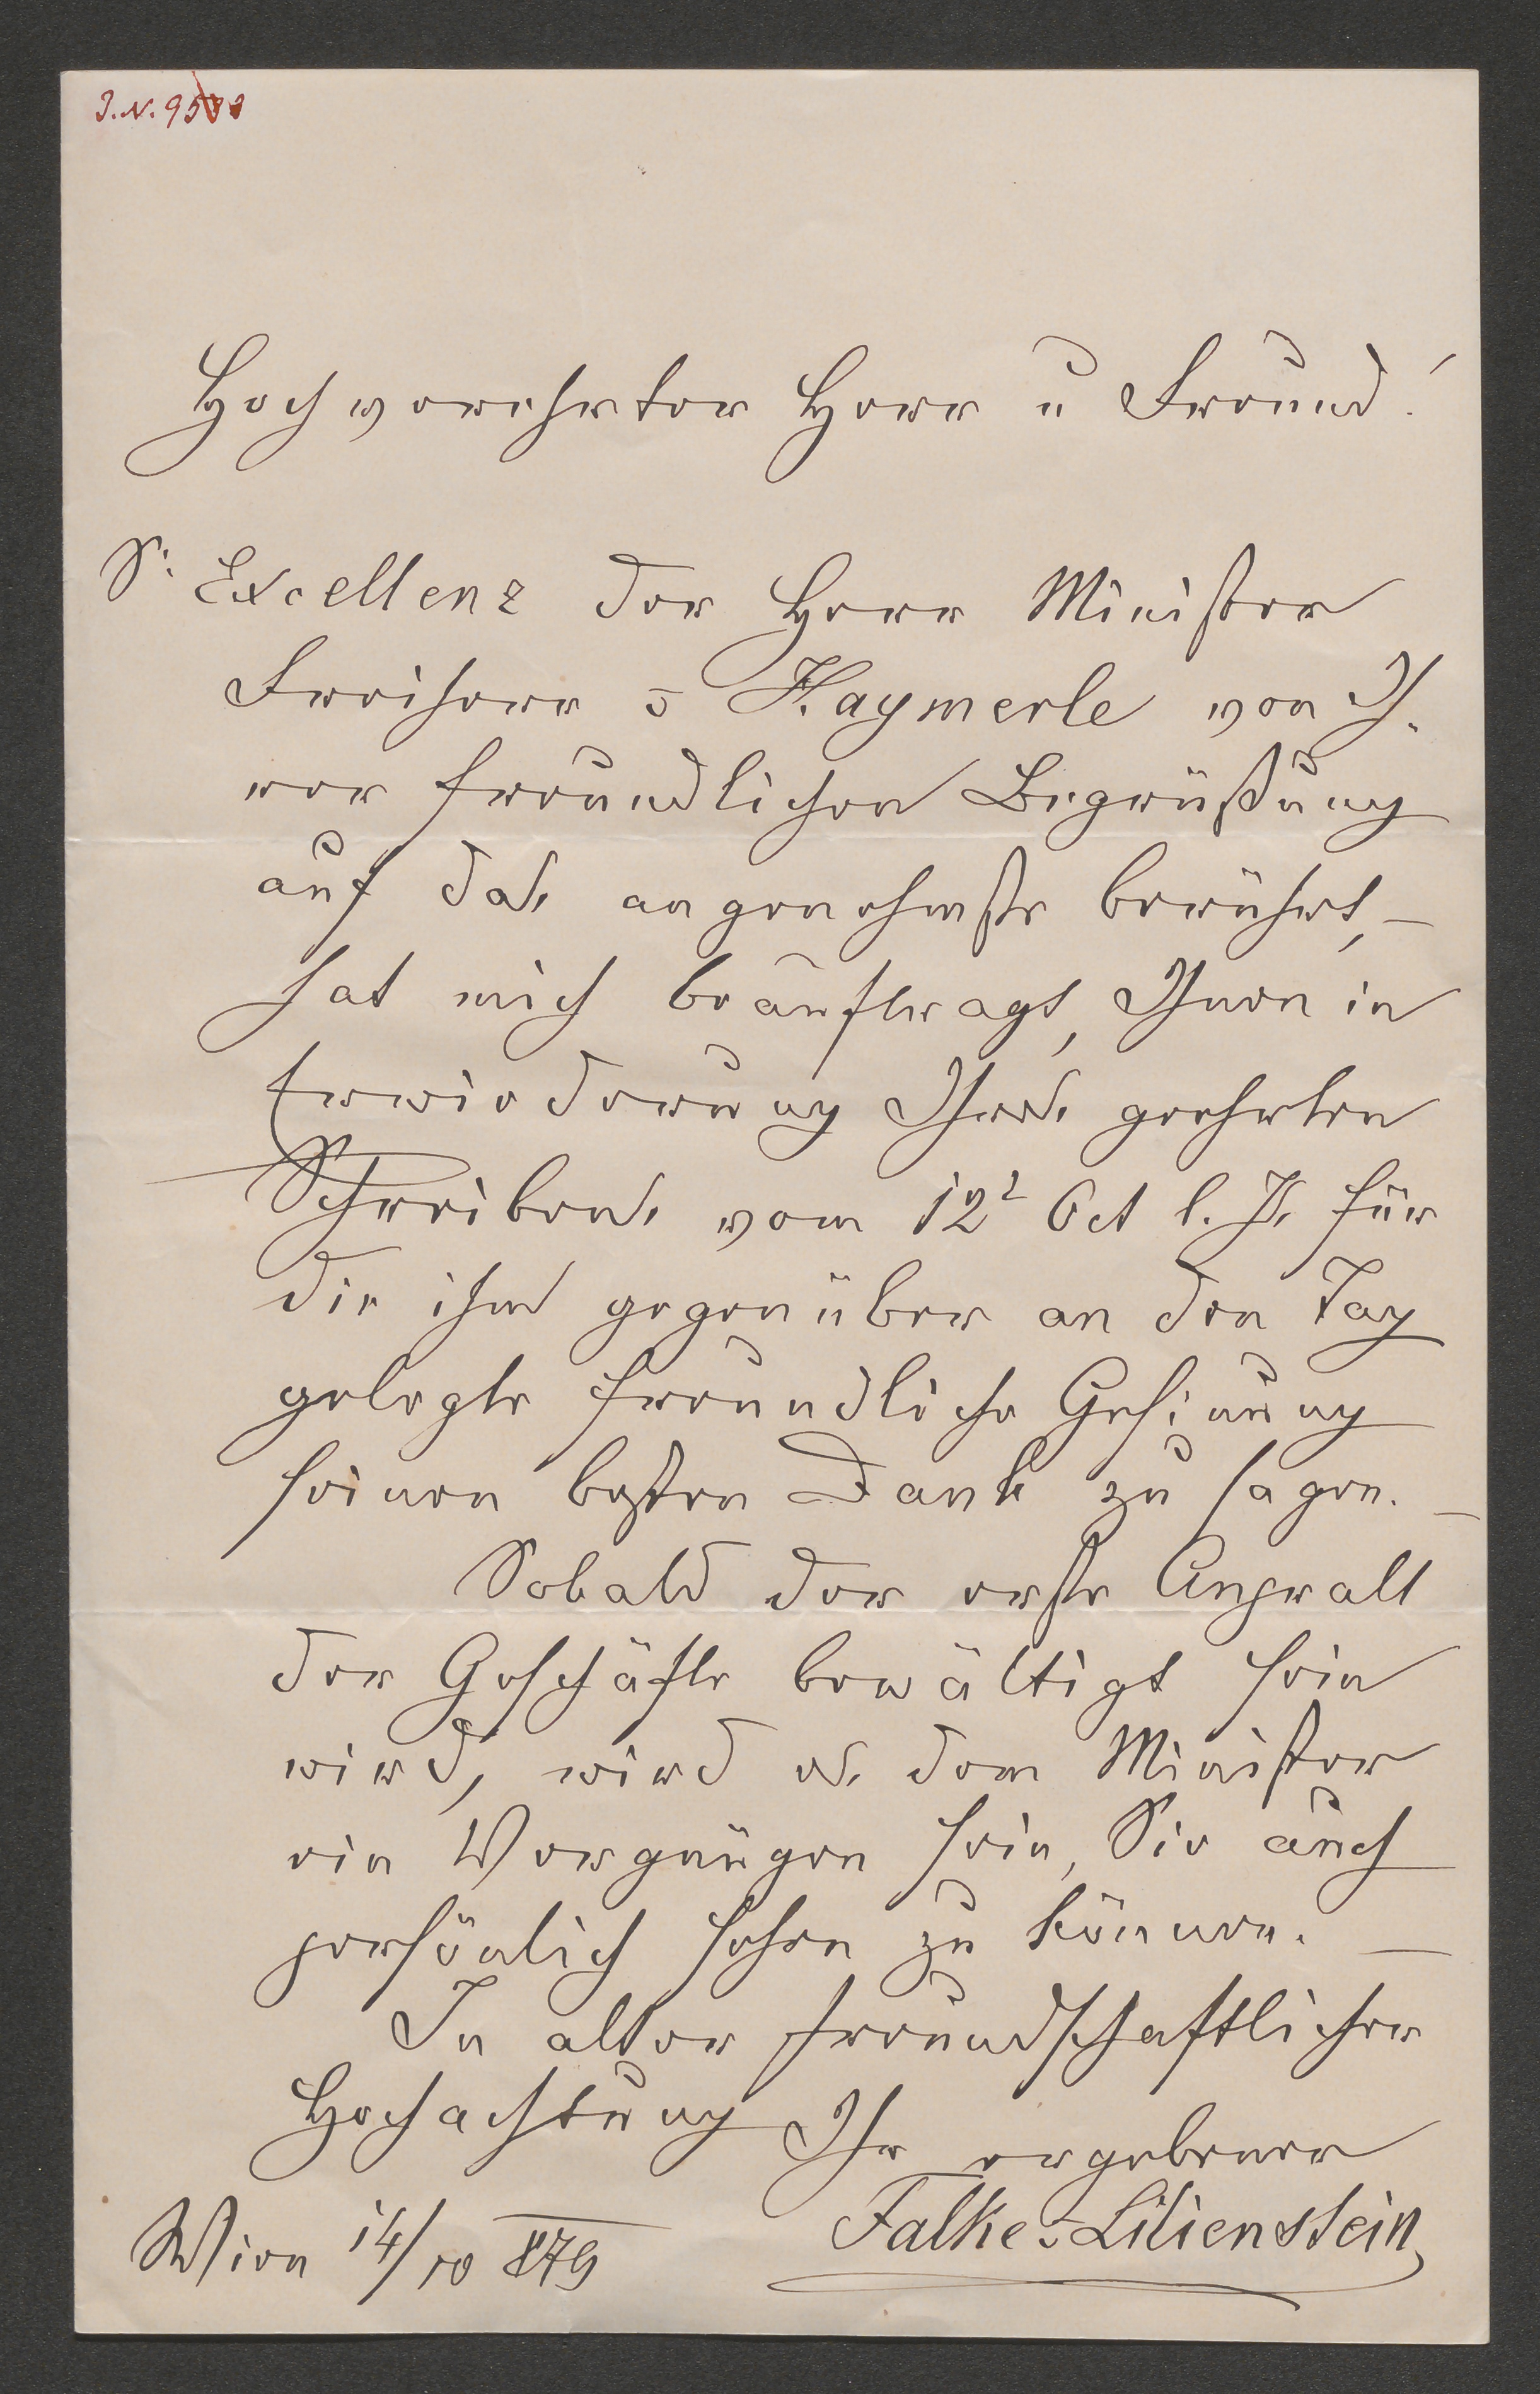 J.N. 95
Hochverehrter Herr u Freund!
Sr. Excellenz der Herr Minister
Freiherr v Haymerle von Ih-
rer freundlichen Begrüßung
auf das angenehmste berührt, –
hat mich beauftragt, Ihnen in
Erwiederung Ihres geehrten
Schreibens vom 12t Oct l. Js. für
die ihm gegenüber an den Tag
gelegte freundliche Gesinung
seinen besten Dank zu sagen. –
Sobald der erste Anprall
der Geschäfte bewältigt sein
wird, wird es dem Minister
ein Vergnügen sein, Sie auch
persönlich sehen zu können. –
In alter freundschaftlicher
Hochachtung Ihr ergebener
Falke v Lilienstein
Wien 14/10 879